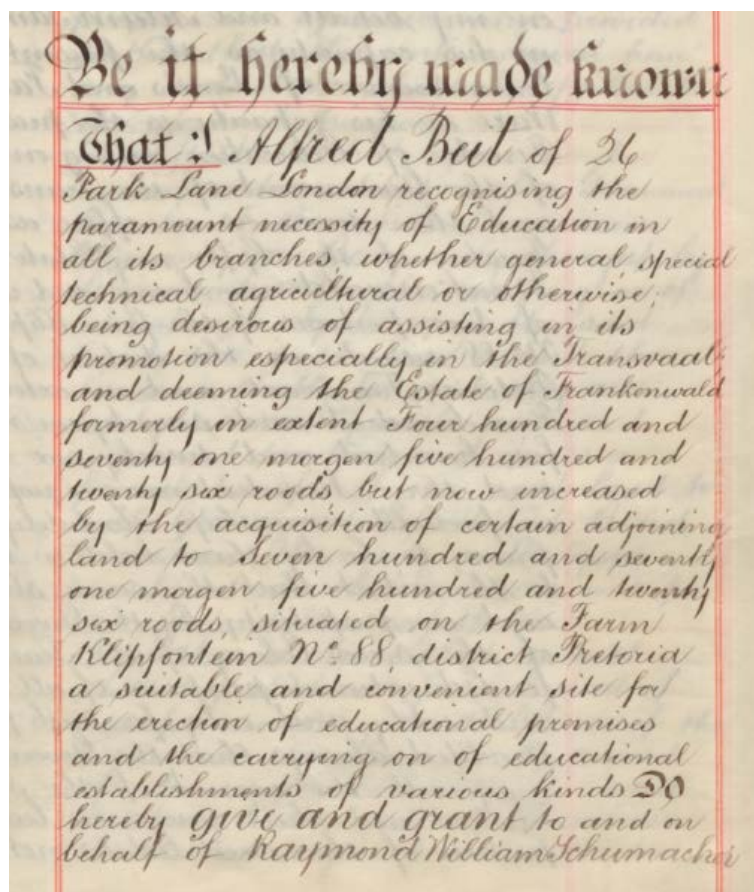 Be it hereby made known
That I Alfred Beit of 26
Park Lane London recognising the
paramount necessity of Education in
all its branches, whether general, special
technical agricultural or otherwise,
being desirous of assisting in its
promotion especially in the Transvaal,
and deeming the Estate of Frankenwald
formerly in extent Four hundred and
seventy one morgen five hundred and
twenty six roods but now increased
by the acquisition of certain adjoining
land to Seven hundred and seventy
one morgen five hundred and twenty
six roods, situated on the Farm
Klipfontein No. 88, district Pretoria
a suitable and convenient site for
the erection of educational premises
and the carrying on of educational
establishments of various kinds DO
hereby give and grant to and on
behalf of Raymond William Schumacher